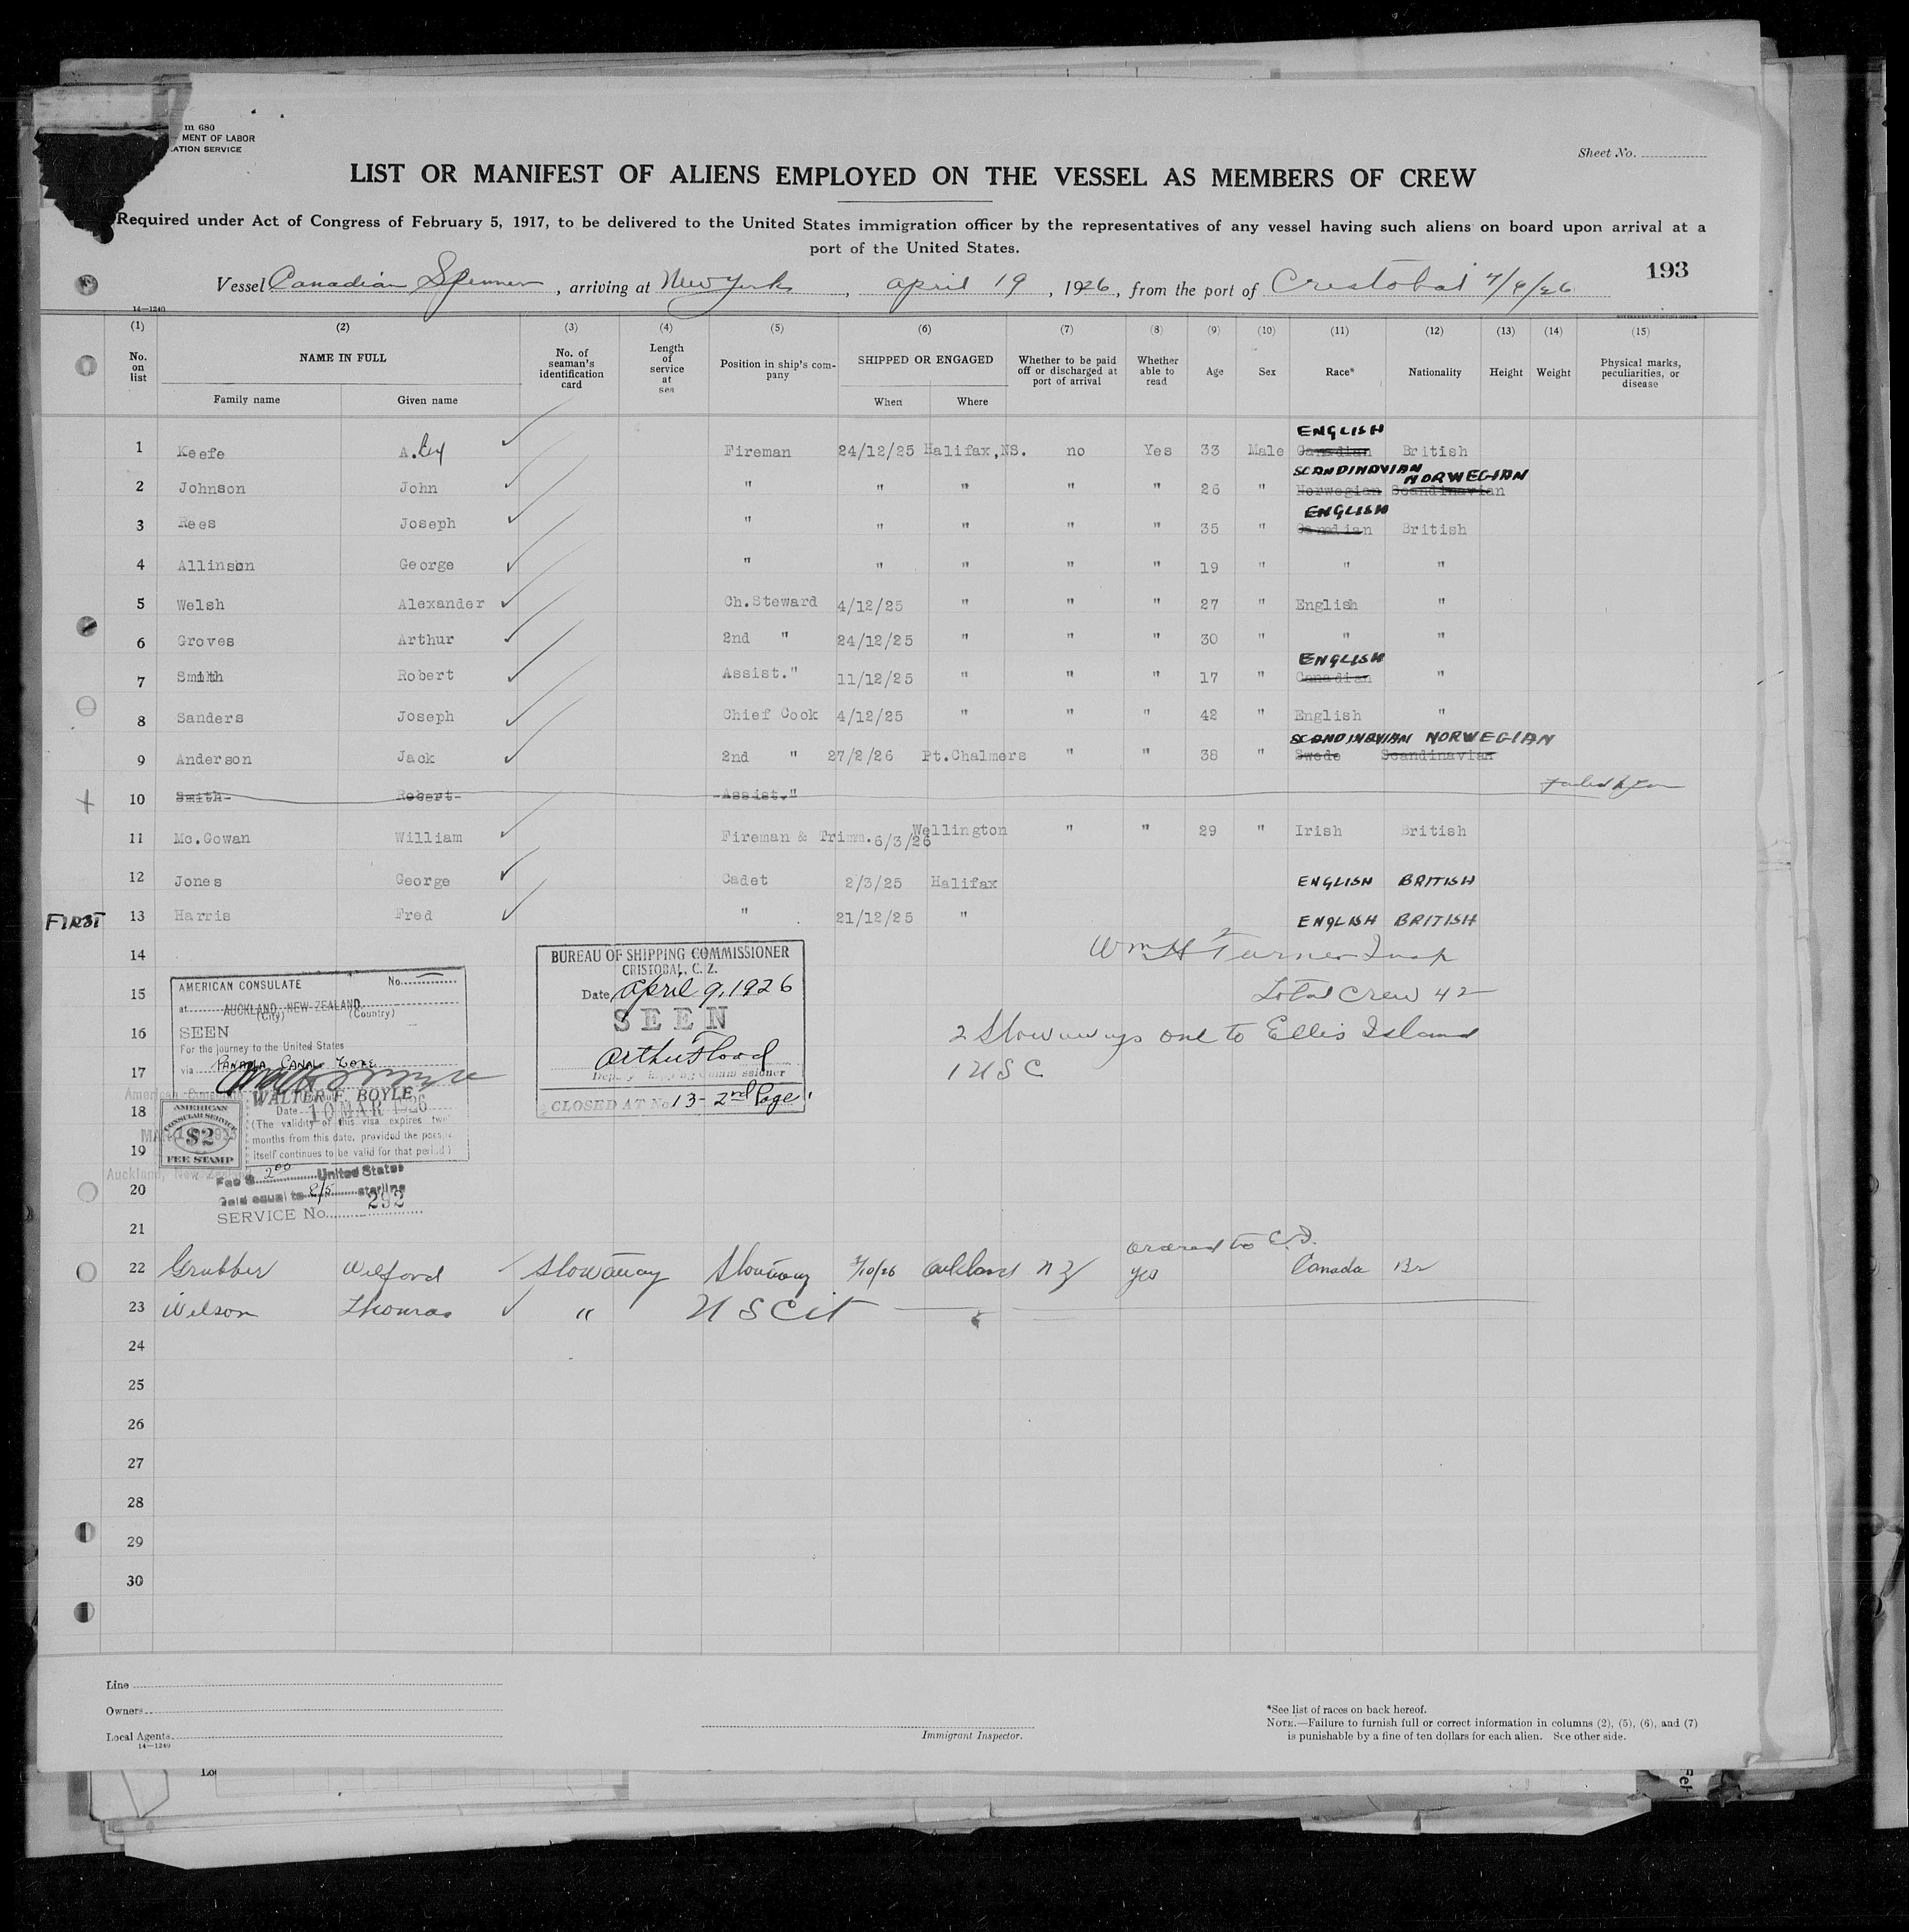 m 680
MENT OF LABOR
ATION SERVICE
Sheet No.
LIST OR MANIFEST OF ALIENS EMPLOYED ON THE VESSEL AS MEMBERS OF CREW
Required under Act of Congress of February 5, 1917, to be delivered to the United States immigration officer by the representatives of any vessel having such aliens on board upon arrival at a
port of the United States.
193
Vessel Canadian, arriving at New York, april 19, 1926, from the port of Cristobal
14—1240
(1) (2) (3) (4) (5) (6) (7) (8) (9) (10) (11) (12) (13) (14) (15)
No. on list NAME IN FULL No. of seaman's identification card Length of service at sea Position in ship's company SHIPPED OR ENGAGED Whether to be paid off or discharged at port of arrival Whether able to read Age Sex Race* Nationality Height Weight Physical marks, peculiarities, or disease
Family name Given name When Where
ENGLISH
1 Keefe A. Fireman 24/12/25 Halifax,NS. no Yes 33 Male Canadian British
SCANDINAVIAN NORWEGIAN
2 Johnson John " " " " " 26 " Norwegian Scandinavian
ENGLISH
3 Rees Joseph " " " " " 35 " Canadian British
4 Allinson George " " " " " 19 " " "
5 Welsh Alexander Ch.Steward 4/12/25 " " " 27 " English "
6 Groves Arthur 2nd " 24/12/25 " " " 30 " " "
ENGLISH
7 Smith Robert Assist." 11/12/25 " " " 17 " Canadian "
8 Sanders Joseph Chief Cook 4/12/25 " " " 42 " English "
SCANDINAVIAN NORWEGIAN
9 Anderson Jack 2nd " 27/2/26 Pt.Chalmers " " 38 " Swede Scandinavian
10 Smith Robert Assist."
11 Mc.Gowan William Fireman & Trimm. 6/3/26 Wellington " " 29 " Irish British
12 Jones George Cadet 2/3/25 Halifax ENGLISH BRITISH
FIRST 13 Harris Fred " 21/12/25 " ENGLISH BRITISH
14 Wm H Turner Insp
15 Total Crew 42
16 2 Stowaways one to Ellis Island
17 1 USC
18
19
20
21
AMERICAN CONSULATE No.
at AUCKLAND NEW ZEALAND
(City) (Country)
SEEN
For the journey to the United States
via PANAMA CANAL ZONE
WALTER F. BOYLE
Date 10 MAR 1926
(The validity of this visa expires twelve
months from this date, provided the passport
itself continues to be valid for that period)
AMERICAN
CONSULAR SERVICE
$2
FEE STAMP
Auckland, New Zealand
Fee $ 2.00 United States
Gold equal to sterling
SERVICE No. 292
BUREAU OF SHIPPING COMMISSIONER
CRISTOBAL, C. Z.
Date april 9, 1926
SEEN
Deputy Shipping Commissioner
CLOSED AT No 13 - 2nd Page
ordered to E.I.
22 Grubber Wilford Stowaway Stowaway yes Canada Br
23 Wilson Thomas " U S Cit
24
25
26
27
28
29
30
Line
Owners
Local Agents
14—1240
Immigrant Inspector.
*See list of races on back hereof.
NOTE.—Failure to furnish full or correct information in columns (2), (5), (6), and (7)
is punishable by a fine of ten dollars for each alien. See other side.